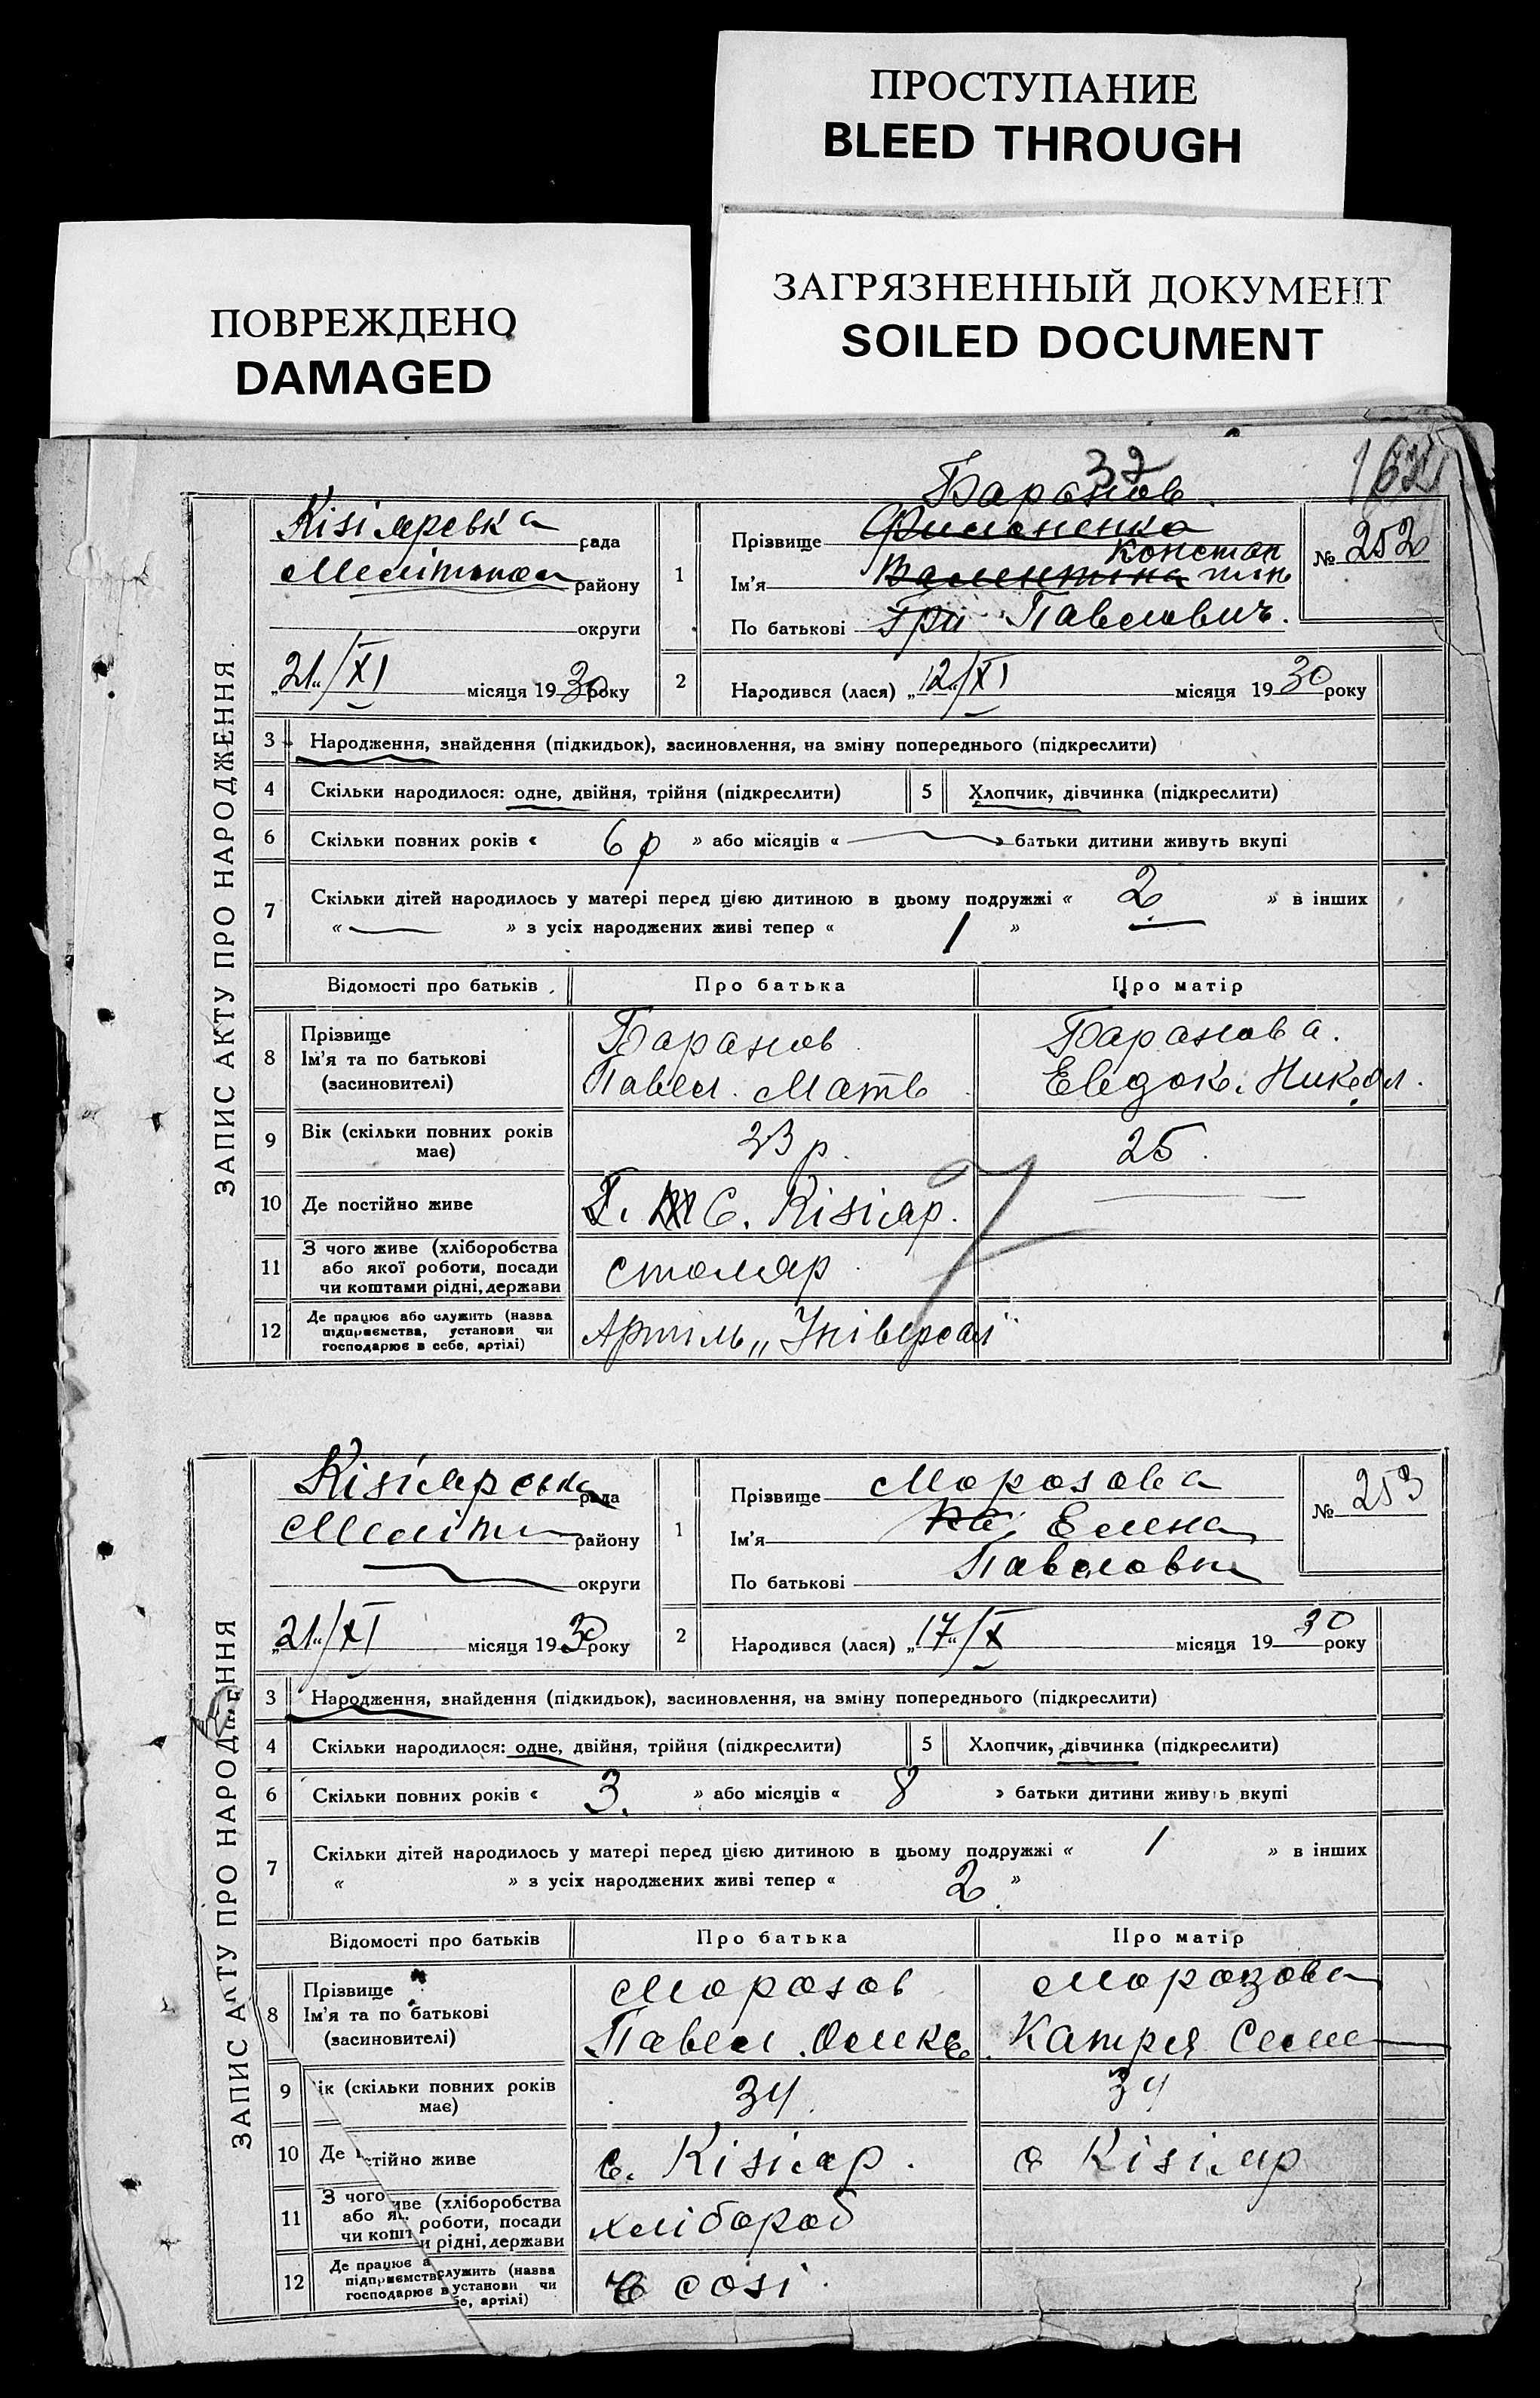 ПРОСТУПАНИЕ
BLEED THROUGH
ПОВРЕЖДЕНО
DAMAGED
ЗАГРЯЗНЕННЫЙ ДОКУМЕНТ
SOILED DOCUMENT
32
Баранов
ЗАПИС АКТУ ПРО НАРОДЖЕННЯ
рада
району
округи
„21“/XI місяця 1930 року
1
Прізвище
Констан
Ім'я Валентина тин
По батькові Гри Павлович.
№ 252
2
Народився (лася) „12“/XI місяця 1930 року
3 Народження, знайдення (підкидьок), засиновлення, на зміну попереднього (підкреслити)
4 Скільки народилося: одне, двійня, трійня (підкреслити)
5 Хлопчик, дівчинка (підкреслити)
6 Скільки повних років « 6 р » або місяців « » батьки дитини живуть вкупі
7 Скільки дітей народилось у матері перед цією дитиною в цьому подружжі « 2 » в інших
« » з усіх народжених живі тепер « 1 »
Відомості про батьків Про батька Про матір
8 Прізвище Баранов Баранова.
Ім'я та по батькові Павел. Матв Евдок. Никол.
(засиновителі)
9 Вік (скільки повних років має) 23 р. 25.
10 Де постійно живе С. Кізіяр.
11 З чого живе (хліборобства
або якої роботи, посади столяр
чи коштами рідні, держави
12 Де працює або служить (назва
підприємства, установи чи Артіль „Універсал“
господарює в себе, артілі)
ЗАПИС АКТУ ПРО НАРОДЖЕННЯ
Кізіярська рада
Меліт району
округи
„21“/XI місяця 1930 року
1
Прізвище Морозова
Ім'я Елена
По батькові Павловна
№ 253
2
Народився (лася) „17“/X місяця 1930 року
3 Народження, знайдення (підкидьок), засиновлення, на зміну попереднього (підкреслити)
4 Скільки народилося: одне, двійня, трійня (підкреслити)
5 Хлопчик, дівчинка (підкреслити)
6 Скільки повних років « 3. » або місяців « 8 » батьки дитини живуть вкупі
7 Скільки дітей народилось у матері перед цією дитиною в цьому подружжі « 1 » в інших
« » з усіх народжених живі тепер « 2 »
Відомості про батьків Про батька Про матір
8 Прізвище Морозов Морозова
Ім'я та по батькові Павел Катря Семе
(засиновителі)
9 ік (скільки повних років має) 34 34
10 Де стійно живе с. Кізіяр. с Кізіяр
11 З чого иве (хліборобства
або як роботи, посади хлібороб
чи кошт и рідні, держави
12 Де працює а служить (назва
підприємств установи чи в собі
господарює в бе, артілі)